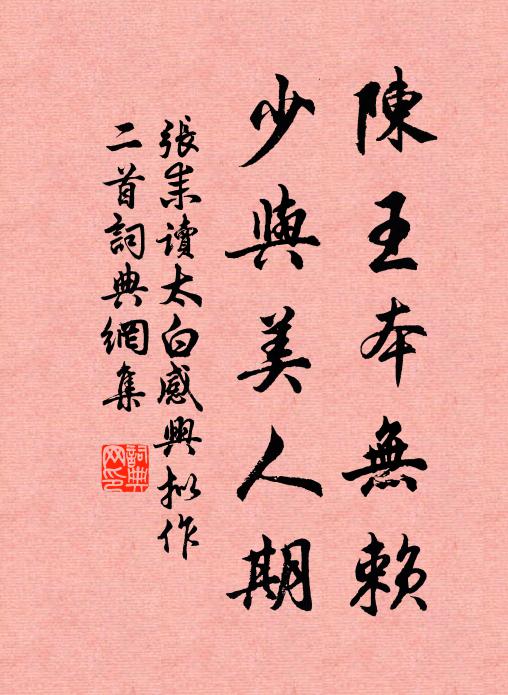 陳王本無賴
少與美人期
張耒讀太白感興擬作
二首詞典網集
詞典
网印